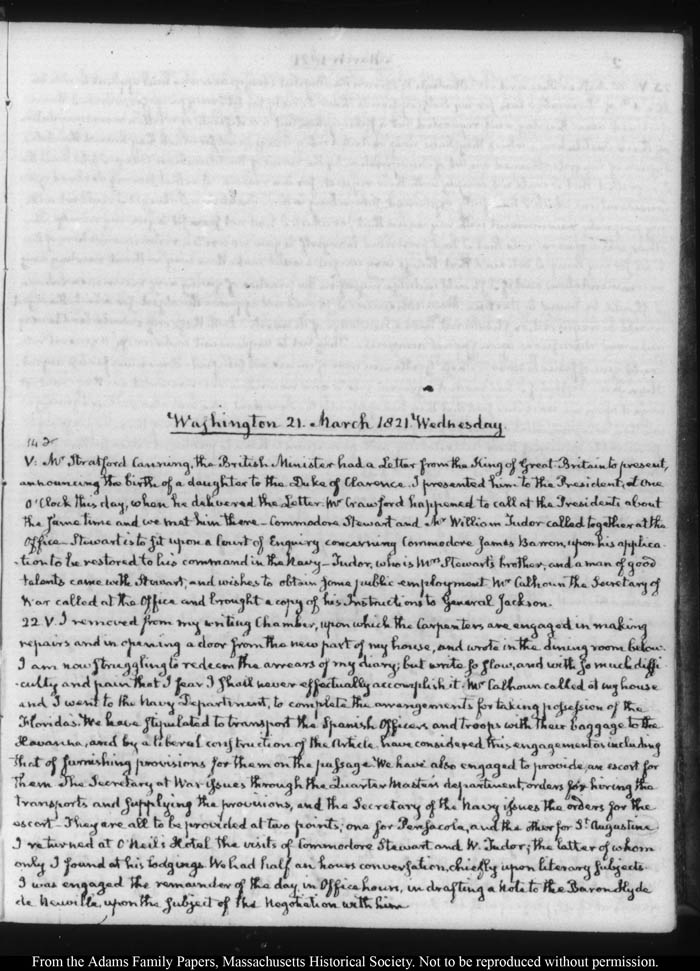 Washington 21. March 1821. Wednesday.
V. Mr. Stratford Canning, the British Minister had a Letter from the King of Great-Britain to present,
announcing the birth of a daughter to the Duke of Clarence. I presented him to the President, at one
O'Clock this day, when he delivered the Letter. Mr. Crawford happened to call at the President's about
the same time and we met him there — Commodore Stewart and Mr. William Tudor called together at the
Office — Stewart is to sit upon a Court of Enquiry concerning Commodore James Barron, upon his applica-
-tion to be restored to his command in the Navy — Tudor, who is Mrs. Stewart's brother, and a man of good
talents came with Stewart, and wishes to obtain some public employment. Mr. Calhoun the Secretary of
War called at the Office and brought a copy of his Instructions to General Jackson.
22 V. I removed from my writing Chamber, upon which the Carpenters are engaged in making
repairs and in opening a door from the new part of my house, and wrote in the dining room below.
I am now struggling to redeem the arrears of my diary; but write so slow, and with so much diffi-
-culty and pain that I fear I shall never effectually accomplish it. Mr. Calhoun called at my house
and I went to the Navy Department, to complete the arrangements for taking possession of the
Floridas. We have stipulated to transport the Spanish Officers and troops with their baggage to the
Havanna, and by a liberal construction of the Article have considered this engagement as including
that of furnishing provisions for them on the passage. We have also engaged to provide an escort for
them. The Secretary at War issues through the Quarter Master's department, orders for hiring the
transports and supplying the provisions, and the Secretary of the Navy issues the orders for the
escort — They are all to be provided at two points, one for Pensacola, and the other for St. Augustine
I returned at O'Neil's Hotel the visits of Commodore Stewart and W. Tudor; the latter of whom
only I found at his lodgings. We had half an hours conversation, chiefly upon literary subjects
I was engaged the remainder of the day, in Office hours, in drafting a Note to the Baron Hyde
de Neuville, upon the subject of the Negotiation with him
From the Adams Family Papers, Massachusetts Historical Society. Not to be reproduced without permission.